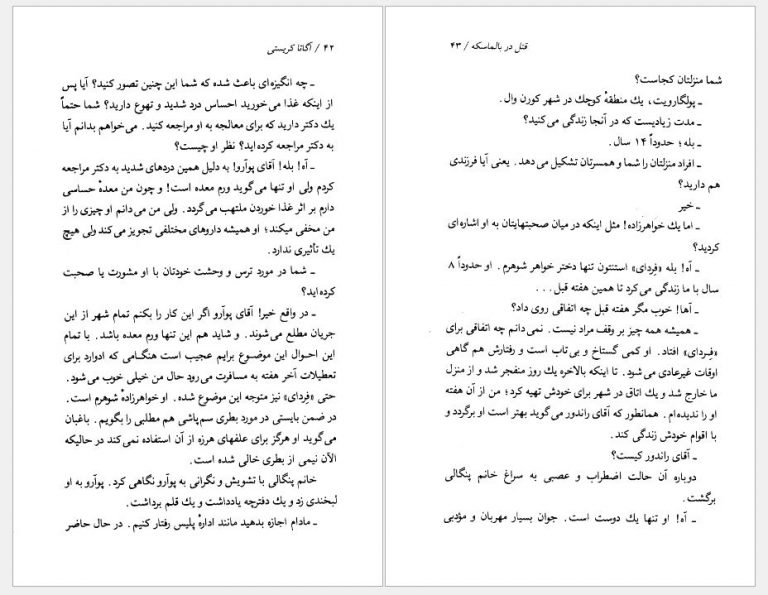 ۴۲ / آگاتا کریستی
ـ چه انگیزه‌ای باعث شده که شما این چنین تصور کنید؟ آیا پس
از اینکه غذا می‌خورید احساس درد شدید و تهوع دارید؟ شما حتماً
یك دکتر دارید که برای معالجه به او مراجعه کنید. می‌خواهم بدانم آیا
به دکتر مراجعه کرده‌اید؟ نظر او چیست؟
ـ آه! بله! آقای پوآرو! به دلیل همین دردهای شدید به دکتر مراجعه
کردم ولی او تنها می‌گوید ورم معده است! و چون من معدهٔ حساسی
دارم بر اثر غذا خوردن ملتهب می‌گردد. ولی من می‌دانم او چیزی را از
من مخفی میکند؛ او همیشه داروهای مختلفی تجویز می‌کند ولی هیچ
یك تأثیری ندارد.
ـ شما در مورد ترس و وحشت خودتان با او مشورت یا صحبت
کرده‌اید؟
ـ در واقع خیر! آقای پوآرو اگر این کار را بکنم تمام شهر از این
جریان مطلع می‌شوند. و شاید هم این تنها ورم معده باشد. با تمام
این احوال این موضوع برایم عجیب است هنگامی که ادوارد برای
تعطیلات آخر هفته به مسافرت می‌رود حال من خیلی خوب می‌شود.
حتی «فِردای» نیز متوجه این موضوع شده. او خواهرزادهٔ شوهرم است.
در ضمن بایستی در مورد بطری سم‌پاشی هم مطلبی را بگویم. باغبان
می‌گوید او هرگز برای علفهای هرزه از آن استفاده نمی‌کند در حالیکه
الآن نیمی از بطری خالی شده است.
خانم پنگالی با تشویش و نگرانی به پوآرو نگاهی کرد. پوآرو به او
لبخندی زد و یك دفترچه یادداشت و یك قلم برداشت.
ـ مادام اجازه بدهید مانند ادارهٔ پلیس رفتار کنیم. در حال حاضر
قتل در بالماسکه / ۴۳
شما منزلتان کجاست؟
ـ پولگارویت، یك منطقهٔ کوچك در شهر کورن وال.
ـ مدت زیادیست که در آنجا زندگی می‌کنید؟
ـ بله؛ حدوداً ۱۴ سال.
ـ افراد منزلتان را شما و همسرتان تشکیل می‌دهد. یعنی آیا فرزندی
هم دارید؟
ـ خیر
ـ اما یك خواهرزاده! مثل اینکه در میان صحبتهایتان به او اشاره‌ای
کردید؟
ـ آه! بله «فِردای» استنتون تنها دختر خواهر شوهرم. او حدوداً ۸
سال با ما زندگی می‌کرد تا همین هفته قبل...
ـ آها! خوب مگر هفته قبل چه اتفاقی روی داد؟
ـ همیشه همه چیز بر وقف مراد نیست. نمی‌دانم چه اتفاقی برای
«فِردای» افتاد. او کمی گستاخ و بی‌تاب است و رفتارش هم گاهی
اوقات غیرعادی می‌شود. تا اینکه بالاخره یك روز منفجر شد و از منزل
ما خارج شد و یك اتاق در شهر برای خودش تهیه کرد؛ من از آن هفته
او را ندیده‌ام. همانطور که آقای راندور می‌گوید بهتر است او برگردد و
با اقوام خودش زندگی کند.
ـ آقای راندور کیست؟
دوباره آن حالت اضطراب و عصبی به سراغ خانم پنگالی
برگشت.
ـ آه! او تنها یك دوست است. جوان بسیار مهربان و مؤدبی